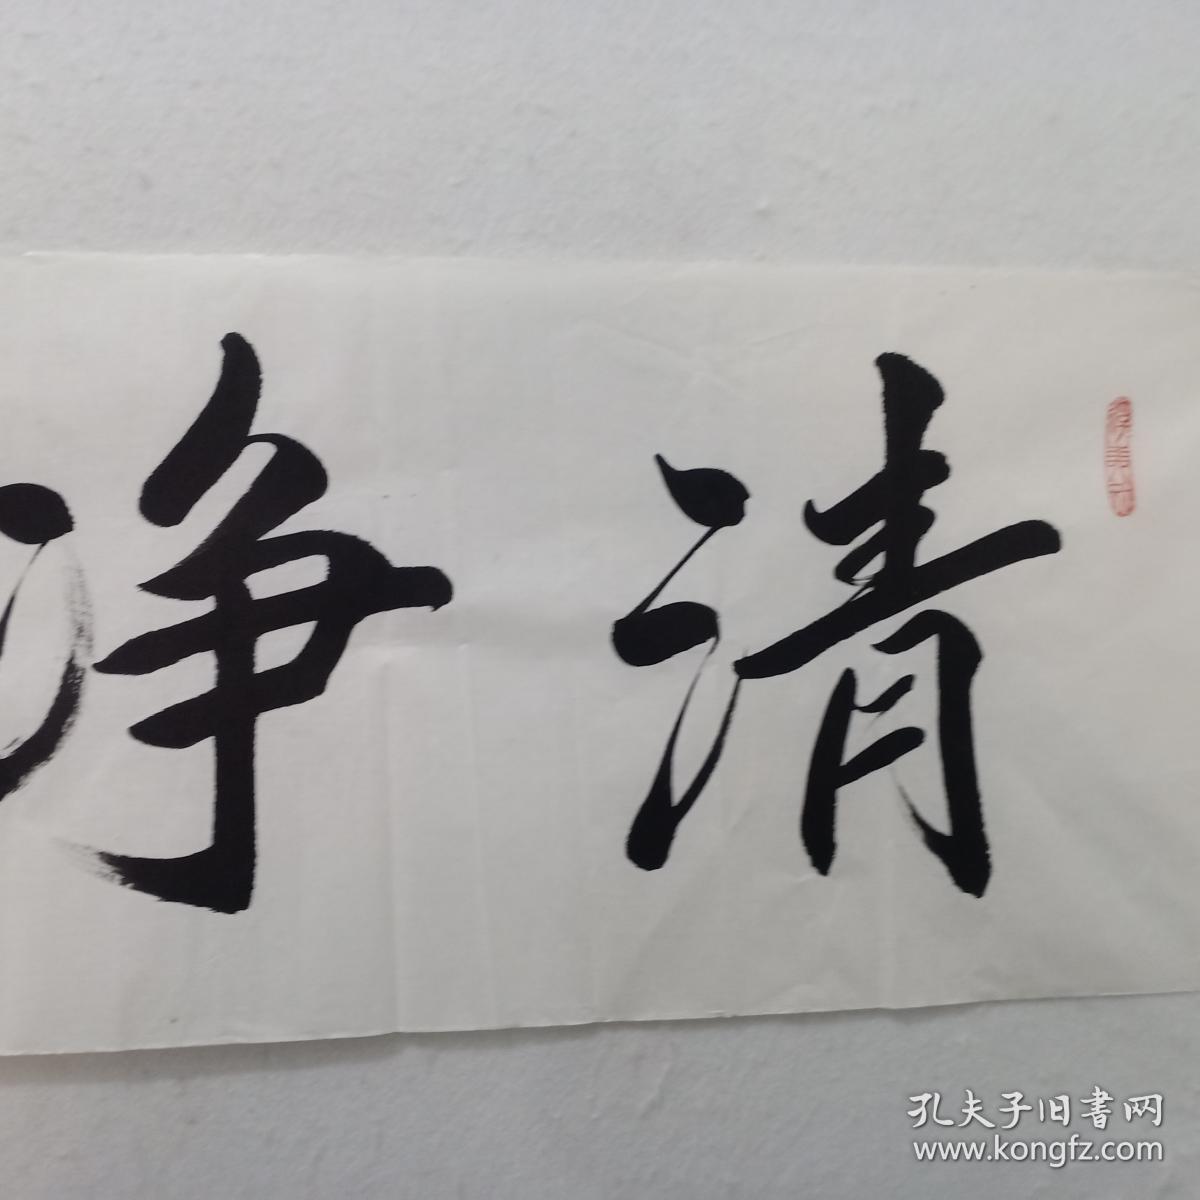 清净
孔夫子旧書网
www.kongfz.com